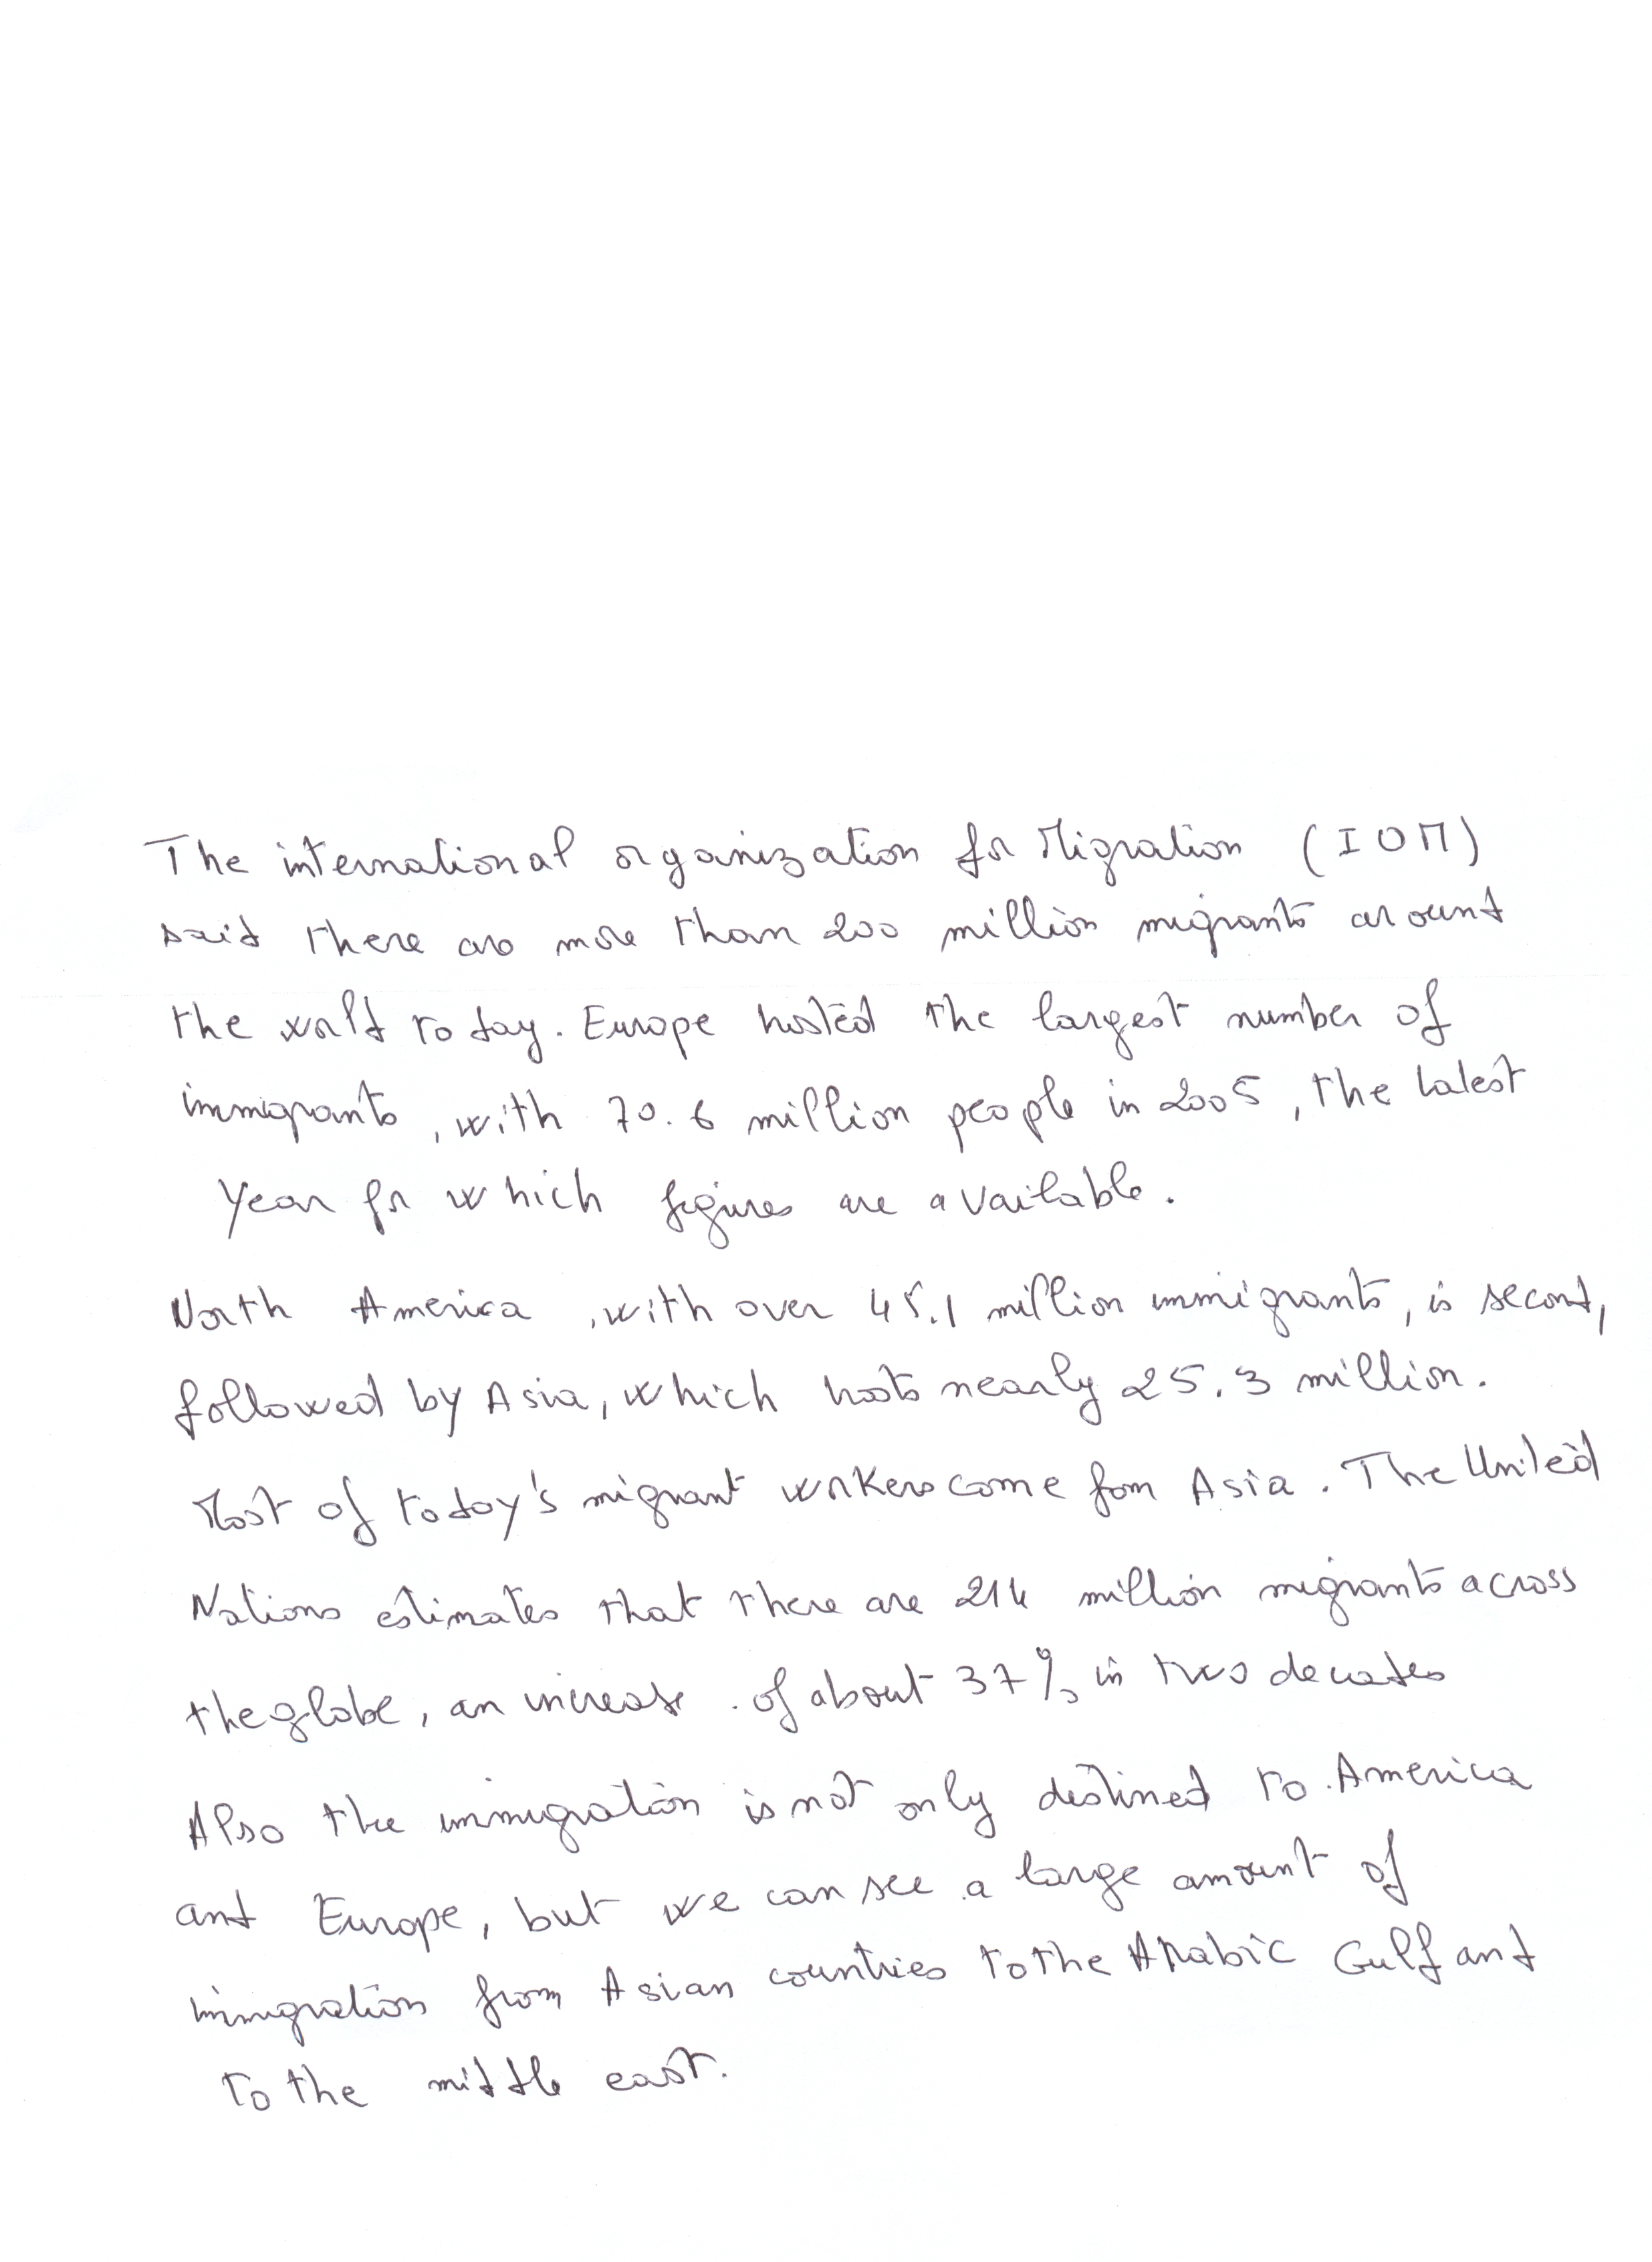 The international organization for Migration (IOM)
said there are more than 200 million migrants around
the world today. Europe hosted the largest number of
immigrants, with 70.6 million people in 2005, the latest
year for which figures are available.
North America, with over 45.1 million immigrants, is second,
followed by Asia, which hosts nearly 25.3 million.
Most of today's migrant workers come from Asia. The United
Nations estimates that there are 214 million migrants across
the globe, an increase of about 37% in two decades
Also the immigration is not only destined to America
and Europe, but we can see a large amount of
immigration from Asian countries to the Arabic Gulf and
to the middle east.